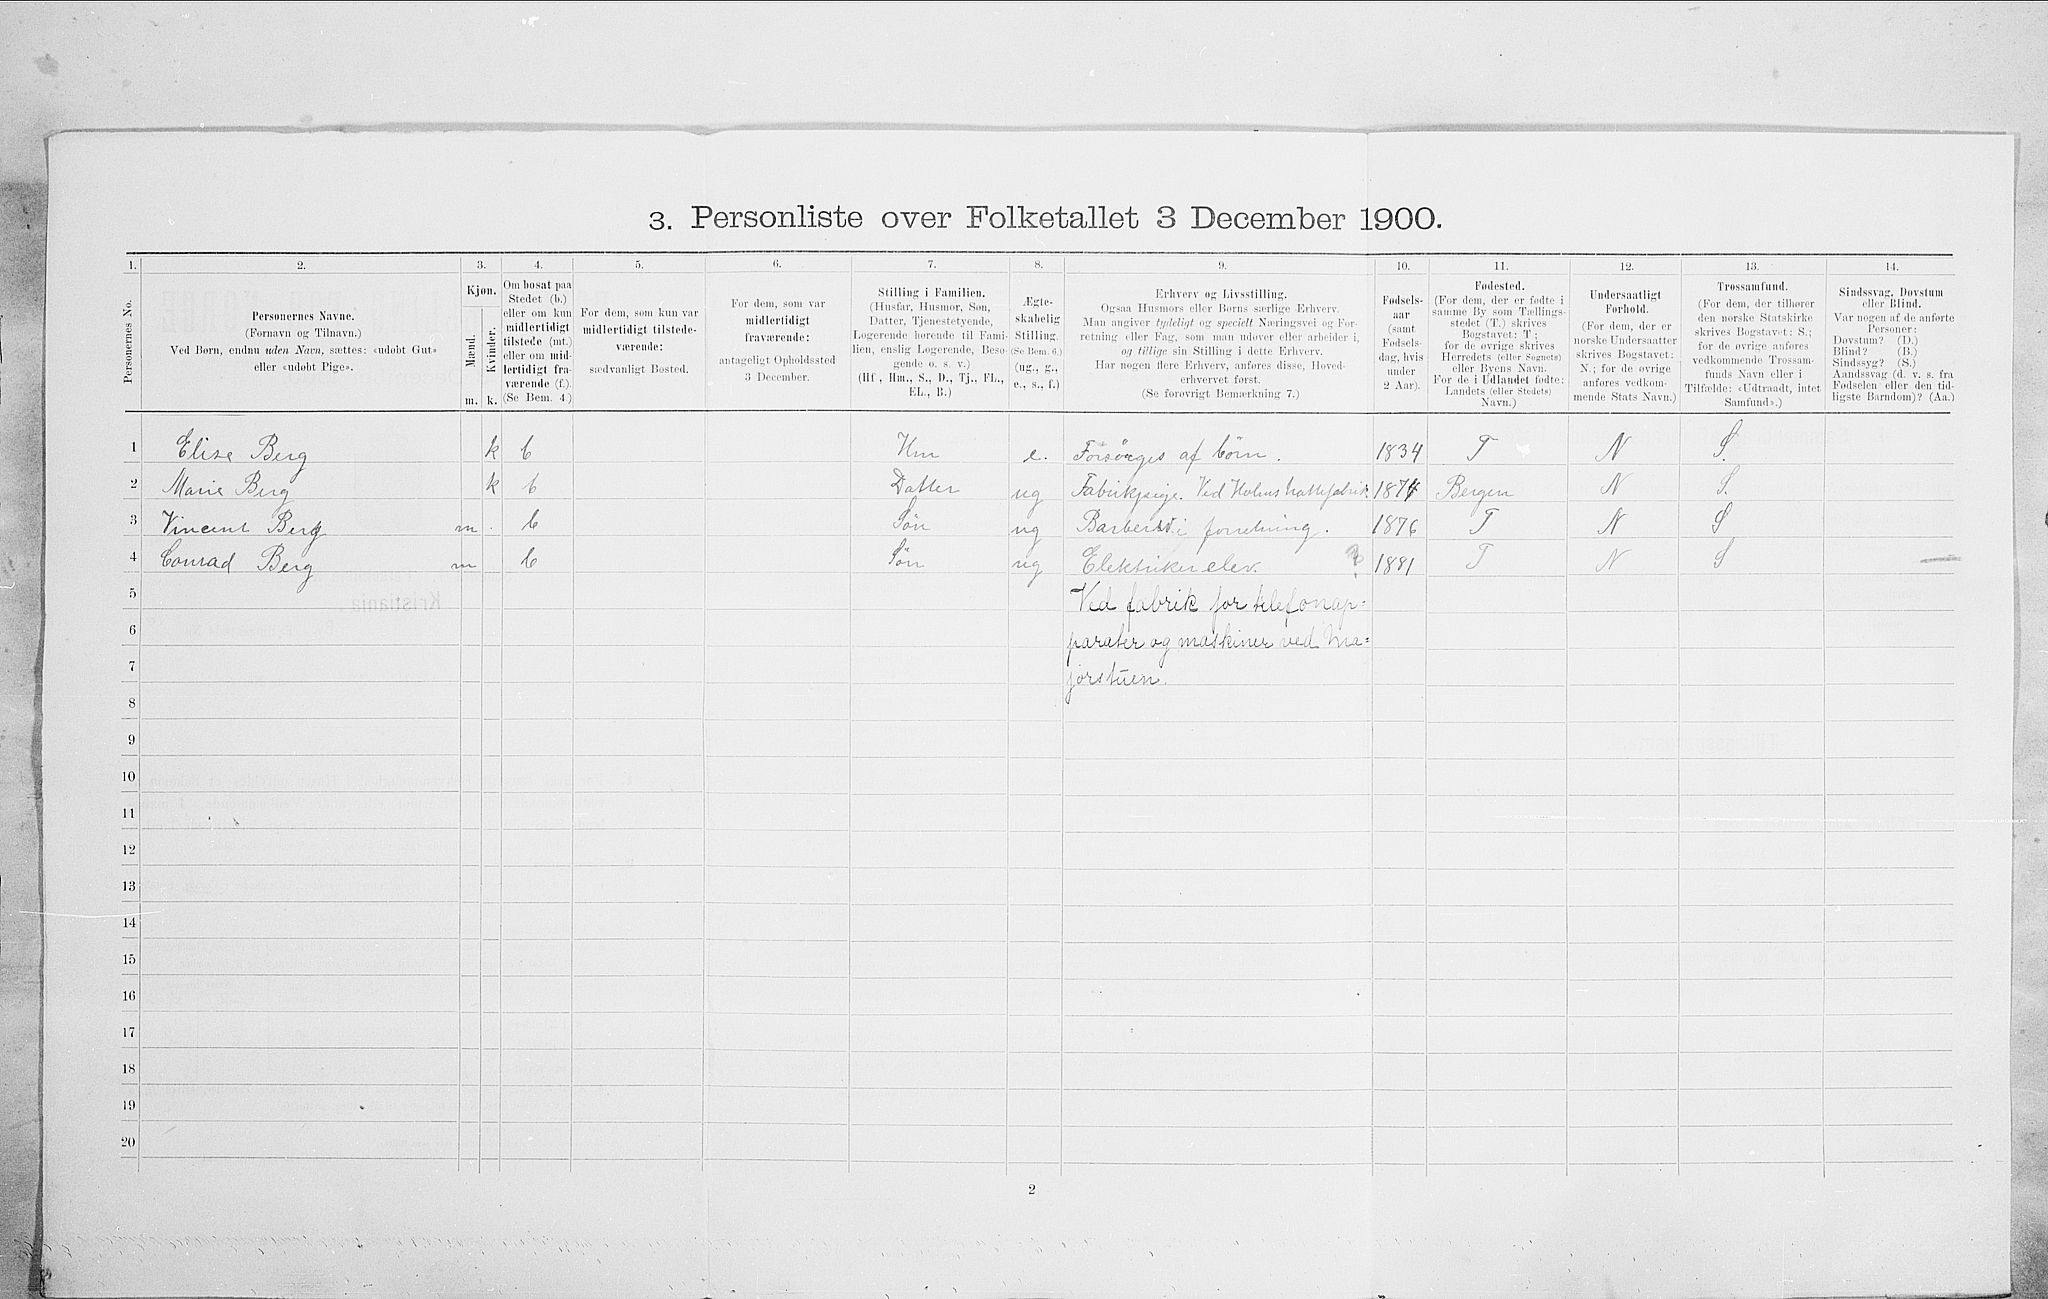 3. Personliste over Folketallet 3 December 1900.
1. 2. 3. 4. 5. 6. 7. 8. 9. 10. 11. 12. 13. 14.
Personernes No.
Personernes Navne.
(Fornavn og Tilnavn.)
Ved Børn, endnu uden Navn, sættes: «udøbt Gut»
eller «udøbt Pige».
Kjøn.
Mænd.
Kvinder.
m. k.
Om bosat paa
Stedet (b.)
eller om kun
midlertidigt
tilstede (mt.)
eller om mid-
lertidigt fra-
værende (f.)
(Se Bem. 4.)
For dem, som kun var
midlertidigt tilstede-
værende:
sædvanligt Bosted.
For dem, som var
midlertidigt
fraværende:
antageligt Opholdssted
3 December.
Stilling i Familien.
(Husfar, Husmor, Søn,
Datter, Tjenestetyende,
Logerende hørende til Fami-
lien, enslig Logerende, Besø-
gende o. s. v.)
(Hf., Hm., S., D., Tj., FL.,
EL., B.)
Ægte-
skabelig
Stilling.
(Se Bem. 6.)
(ug., g.,
e., s., f.)
Erhverv og Livsstilling.
Ogsaa Husmors eller Børns særlige Erhverv.
Man angiver tydeligt og specielt Næringsvei og For-
retning eller Fag, som man udøver eller arbeider i,
og tillige sin Stilling i dette Erhverv.
Har nogen flere Erhverv, anføres disse, Hoved-
erhvervet først.
(Se forøvrigt Bemærkning 7.)
Fødsels-
aar
(samt
Fødsels-
dag, hvis
under
2 Aar).
Fødested.
(For dem, der er fødte i
samme By som Tællings-
stedet (T.) skrives
Bogstavet: T;
for de øvrige skrives
Herredets (eller Sognets)
eller Byens Navn.
For de i Udlandet fødte:
Landets (eller Stedets)
Navn.)
Undersaatligt
Forhold.
(For dem, der er
norske Undersaatter
skrives Bogstavet:
N.; for de øvrige
anføres vedkom-
mende Stats Navn.)
Trossamfund.
(For dem, der tilhører
den norske Statskirke
skrives Bogstavet: S.;
for de øvrige anføres
vedkommende Trossam-
funds Navn eller i
Tilfælde: «Udtraadt, intet
Samfund».)
Sindssvag, Døvstum
eller Blind.
Var nogen af de anførte
Personer:
Døvstum? (D.)
Blind? (B.)
Sindssyg? (S.)
Aandssvag (d. v. s. fra
Fødselen eller den tid-
ligste Barndom)? (Aa.)
1 Elise Berg k b Hm e. Forsørges af börn. 1834 T N S.
2 Marie Berg k b Datter ug Fabrikpige. Ved Holms hattefabrik 1874 Bergen N S.
3 Vincent Berg m. b Søn ug Barber i forretning. 1876 T N S
4 Conrad Berg m b Søn ug Elektriker elev. 1881 T N S
5 Ved fabrik for telefonap-
6 parater og maskiner ved Ma-
7 jorstuen.
8
9
10
11
12
13
14
15
16
17
18
19
20
2